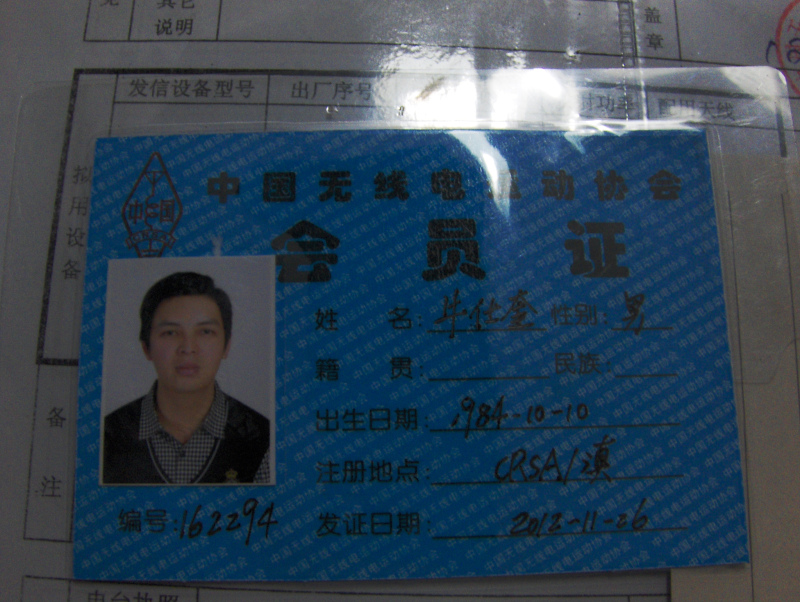 其它
说明
盖
章
发信设备型号 出厂序号 功率 配用天线
拟
用
设
备
中国无线电运动协会
会员证
姓 名: 牛仕奎 性别: 男
籍 贯: 民族:
出生日期: 1984-10-10
注册地点: CRSA/滇
编号: 162294 发证日期: 2012-11-26
备
注
电台执照